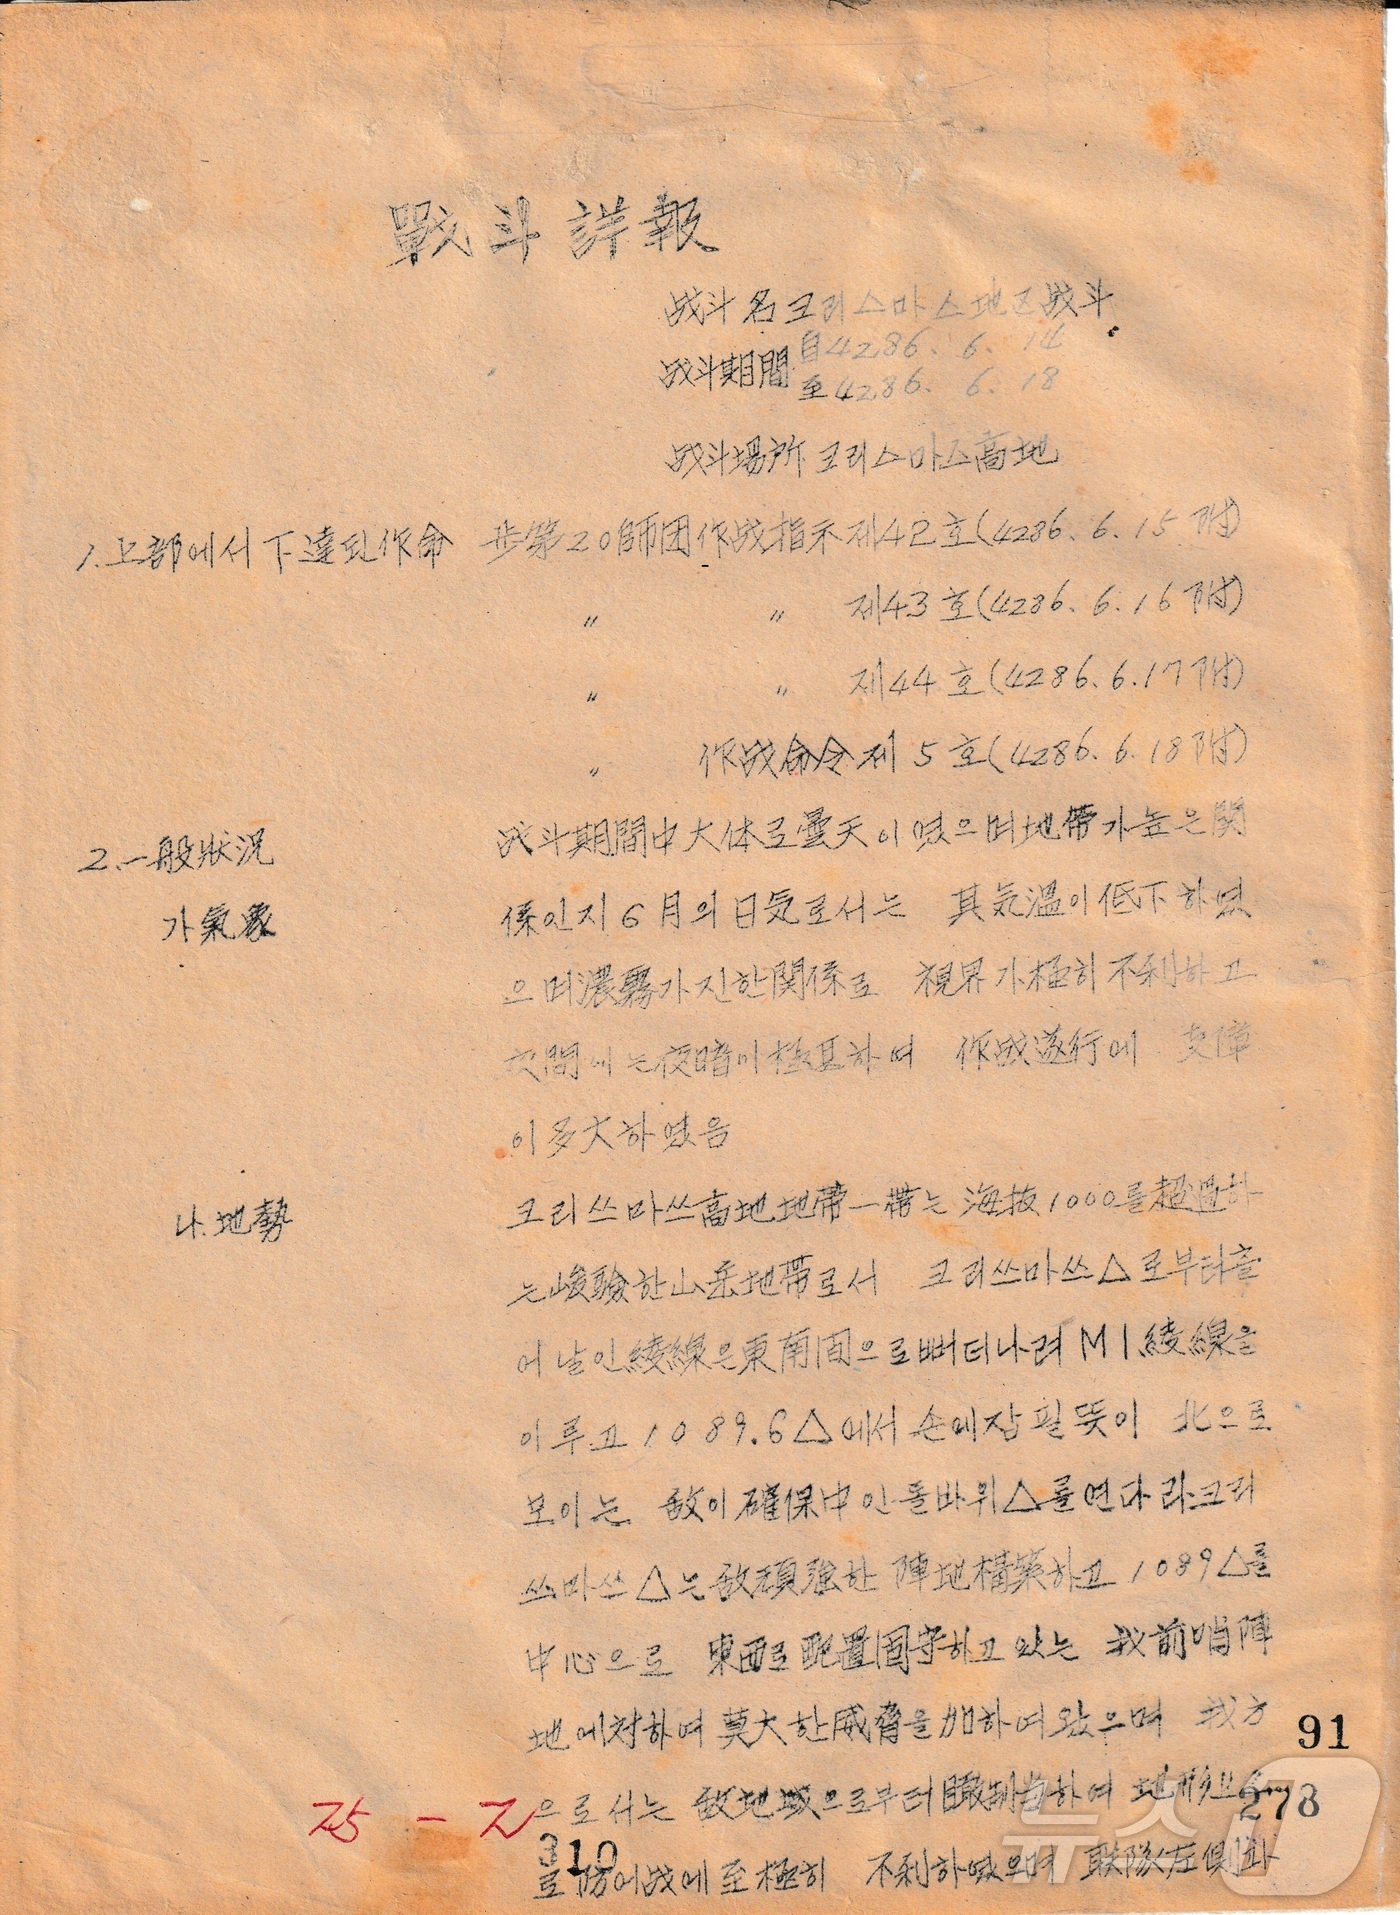 戰斗詳報
战斗名 크리스마스地区战斗
战斗期間 自4286. 6. 14
至4286. 6. 18
战斗場所 크리스마스高地
1. 上部에서下達된作命 步第20師団作战指示제42호(4286. 6. 15 附)
〃 〃 제43호(4286. 6. 16 附)
〃 〃 제44호(4286. 6. 17 附)
〃 作战命令제 5호(4286. 6. 18 附)
2. 一般狀況
战斗期間中大体로曇天이였으며地帶가높은関
가 氣象
係인지 6月의日気로서는 其気温이低下하였
으며濃霧가진한関係로 視界가極히不利하고
夜間에는夜暗이極甚하여 作战遂行에 支障
이多大하였음
나. 地勢
크리쓰마쓰高地地帶一帶는 海抜1000를超過하
는峻險한山岳地帶로서 크리쓰마쓰△로부터흘
어날인綾線은東南面으로뻐더나려 M1綾線을
이루고 1089.6△에서 손에잡필뜻이 北으로
보이는 敵이確保中인돌바위△를연다라크리
쓰마쓰△는敵頑强한 陣地構築하고 1089△를
中心으로 東西로配置固守하고있는 我前哨陣
地에対하여莫大한威脅을加하여왔으며 我方
으로서는 敵地域으로부터瞰制当하여 地形上
로防어战에至極히 不利하였으며 聯隊左側과
91
278
310
75 - 2
뉴스1